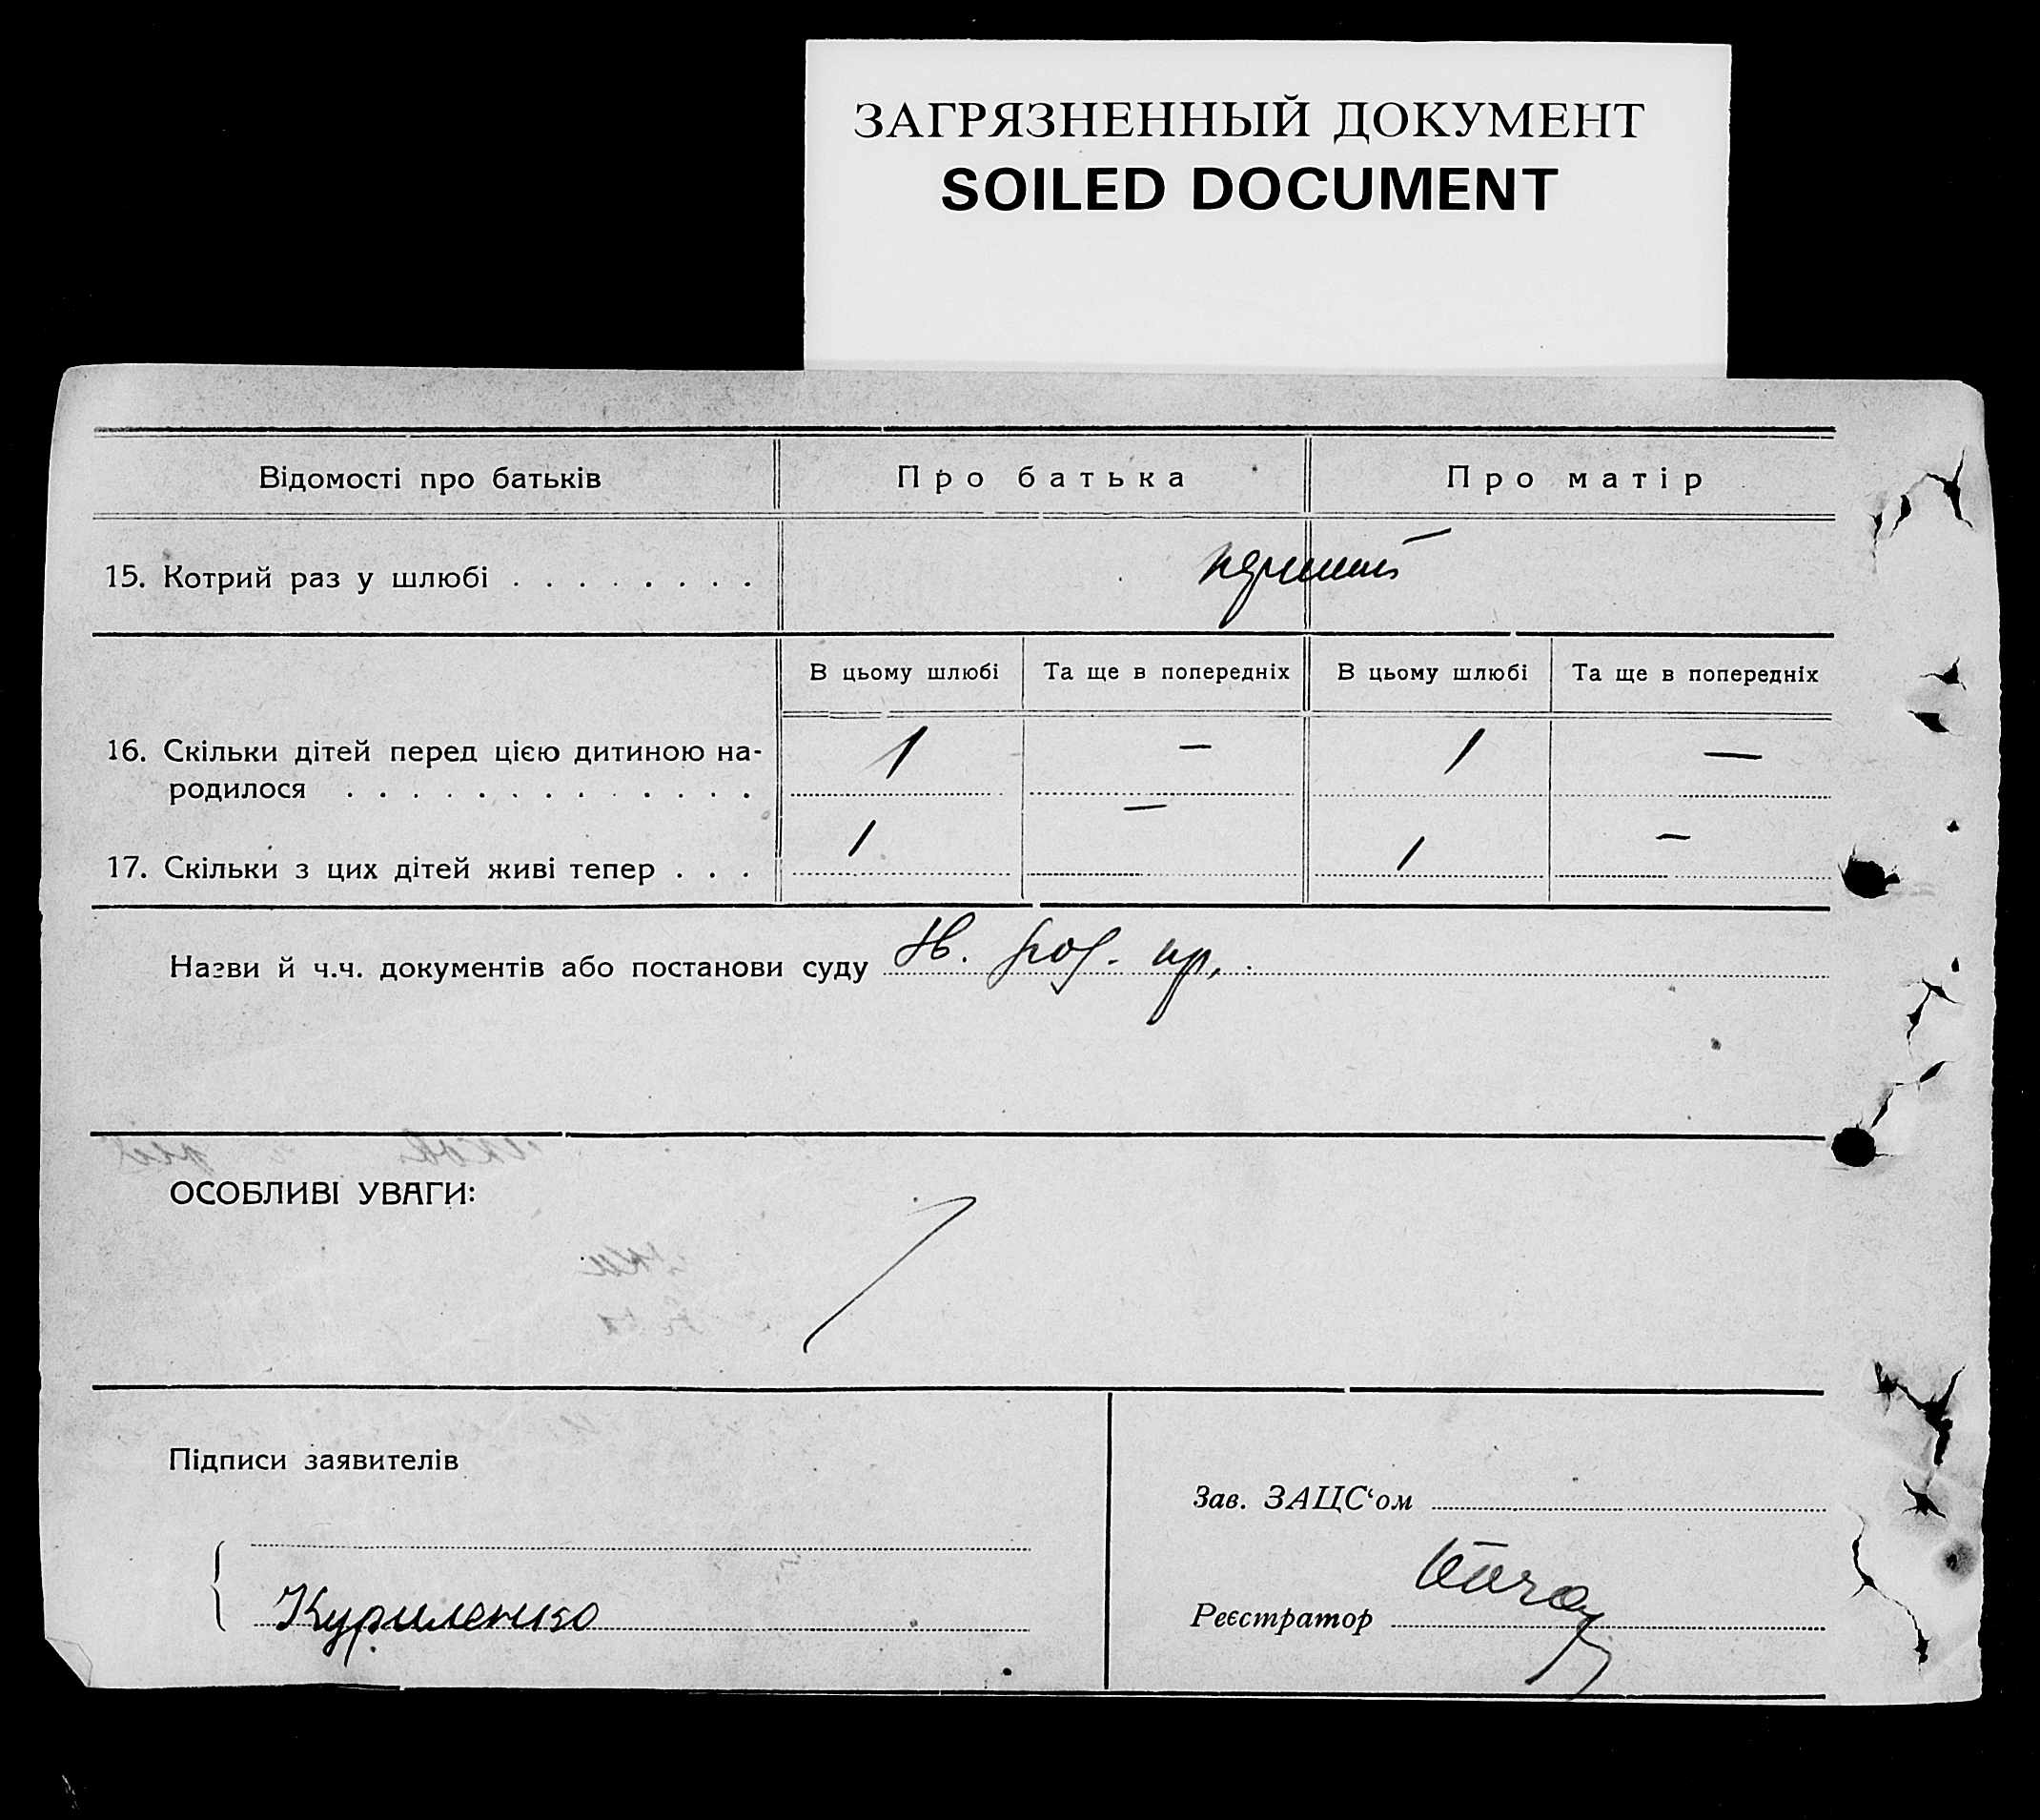 ЗАГРЯЗНЕННЫЙ ДОКУМЕНТ
SOILED DOCUMENT
Відомості про батьків Про батька Про матір
15. Котрий раз у шлюбі . . . . . . . . перший
В цьому шлюбі Та ще в попередніх В цьому шлюбі Та ще в попередніх
16. Скільки дітей перед цією дитиною на-
родилося . . . . . . . . . . . . . 1 — 1 —
17. Скільки з цих дітей живі тепер . . . 1 — 1 —
Назви й ч.ч. документів або постанови суду
ОСОБЛИВІ УВАГИ:
Підписи заявителів
Зав. ЗАЦС‘ом
Куриленко
Реєстратор